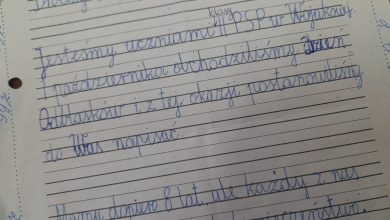 Jesteśmy uczniami klasy II PSP w Wojnikowy.
października obchodziliśmy Dzień
Odblasków i z tej okazji postanowiliśmy
do Was napisać.
Mamy dopiero 8 lat, ale każdy z nas